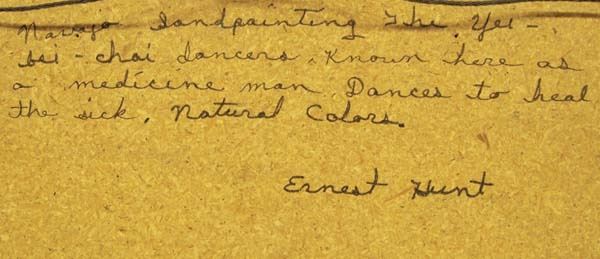 Navajo Sandpainting The Yei-
bei-chai dancers. Known here as
a medicine man. Dances to heal
the sick. Natural Colors.
Ernest Hunt